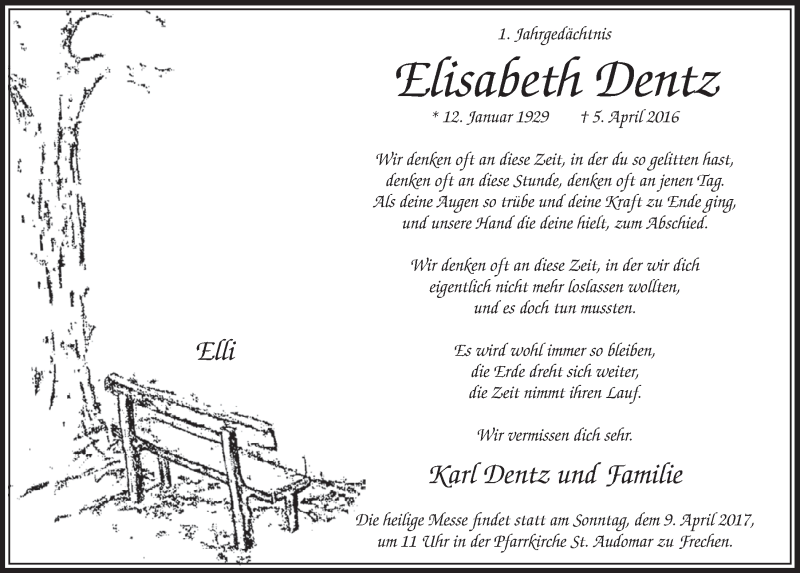 1. Jahrgedächtnis
Elisabeth Dentz
* 12. Januar 1929 † 5. April 2016
Wir denken oft an diese Zeit, in der du so gelitten hast,
denken oft an diese Stunde, denken oft an jenen Tag.
Als deine Augen so trübe und deine Kraft zu Ende ging,
und unsere Hand die deine hielt, zum Abschied.
Wir denken oft an diese Zeit, in der wir dich
eigentlich nicht mehr loslassen wollten,
und es doch tun mussten.
Elli
Es wird wohl immer so bleiben,
die Erde dreht sich weiter,
die Zeit nimmt ihren Lauf.
Wir vermissen dich sehr.
Karl Dentz und Familie
Die heilige Messe findet statt am Sonntag, dem 9. April 2017,
um 11 Uhr in der Pfarrkirche St. Audomar zu Frechen.